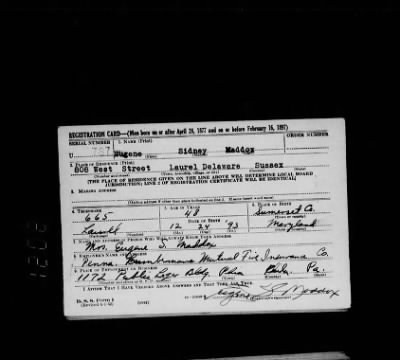 REGISTRATION CARD—(Men born on or after April 28, 1877 and on or before February 16, 1897)
SERIAL NUMBER 1. NAME (Print) ORDER NUMBER
U Eugene Sidney Maddox
2. PLACE OF RESIDENCE (Print)
608 West Street Laurel Delaware Sussex
(THE PLACE OF RESIDENCE GIVEN ON THE LINE ABOVE WILL DETERMINE LOCAL BOARD
JURISDICTION; LINE 2 OF REGISTRATION CERTIFICATE WILL BE IDENTICAL)
3. MAILING ADDRESS
4. TELEPHONE 5. AGE IN YEARS 6. PLACE OF BIRTH
665 48 Somerset Co.
DATE OF BIRTH
Laurel 12 24 93 Maryland
7. NAME AND ADDRESS OF PERSON WHO WILL ALWAYS KNOW YOUR ADDRESS
Mrs. Eugene S. Maddox
8. EMPLOYER'S NAME AND ADDRESS
Penna. Lumbermens Mutual Fire Insurance Co.
9. PLACE OF EMPLOYMENT OR BUSINESS
1172 Public Bldg. Phila. Pa.
I AFFIRM THAT I HAVE VERIFIED ABOVE ANSWERS AND THAT THEY ARE TRUE.
D. S. S. Form 1
Eugene S. Maddox